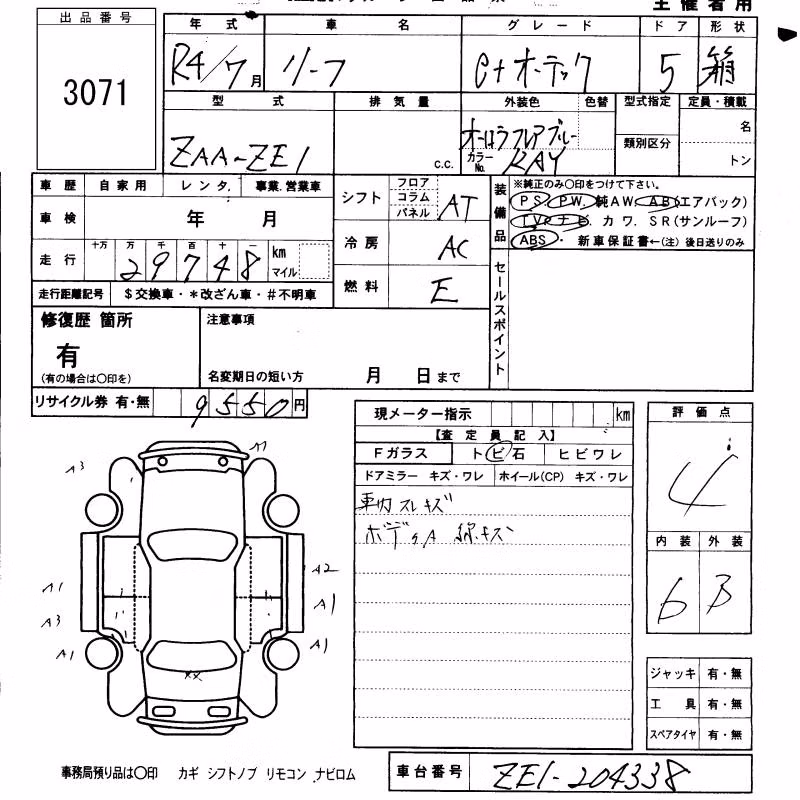 主催者用
出品番号 年式 車名 グレード ドア 形状
3071 R4/7月 リーフ e+オーテック 5 箱
型式 排気量 外装色 色替 型式指定 定員・積載
ZAA-ZE1 c.c. オーロラフレアブルー 名
カラーNo. RAY 類別区分 トン
車歴 自家用 レンタ. 事業.営業車 シフト フロア コラム パネル AT 装備品 ※純正のみ〇印をつけて下さい。
PS PW. 純AW AB(エアバック)
車検 年 月 TV ナビ. カワ. SR(サンルーフ)
冷房 AC ABS・ 新車保証書←(注)後日送りのみ
走行 十万 万 千 百 十 一 km マイル
29748
走行距離記号 $交換車・*改ざん車・#不明車 燃料 E セールスポイント
修復歴 箇所 注意事項
有
(有の場合は〇印を) 名変期日の短い方 月 日まで
リサイクル券 有・無 9550円
現メーター指示 km 評価点
【査定員記入】 4
Fガラス トビ石 ヒビワレ
ドアミラー キズ・ワレ ホイール(CP) キズ・ワレ
車内スレキズ
ボディA 線キズ
内装 外装
6 B
A1
A3
A1
A3
A1
A2
A1
A1
XX
ジャッキ 有・無
工具 有・無
スペアタイヤ 有・無
事務局預り品は〇印 カギ シフトノブ リモコン ナビロム 車台番号 ZE1-204338